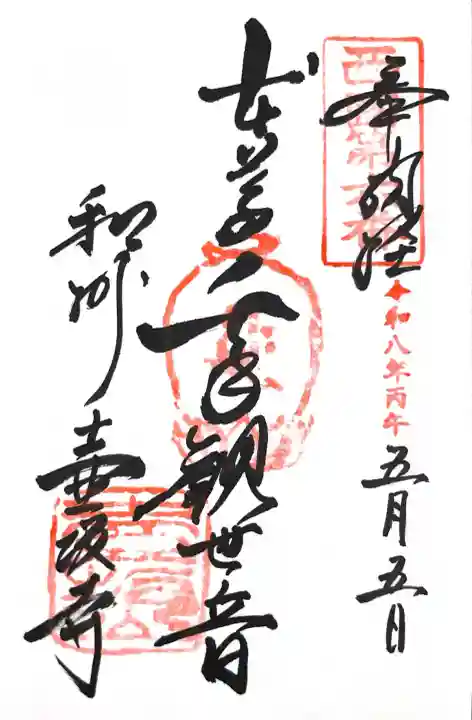 西國第六番
奉納経
令和八年丙午 五月五日
本尊千手観世音
和州 壷阪寺